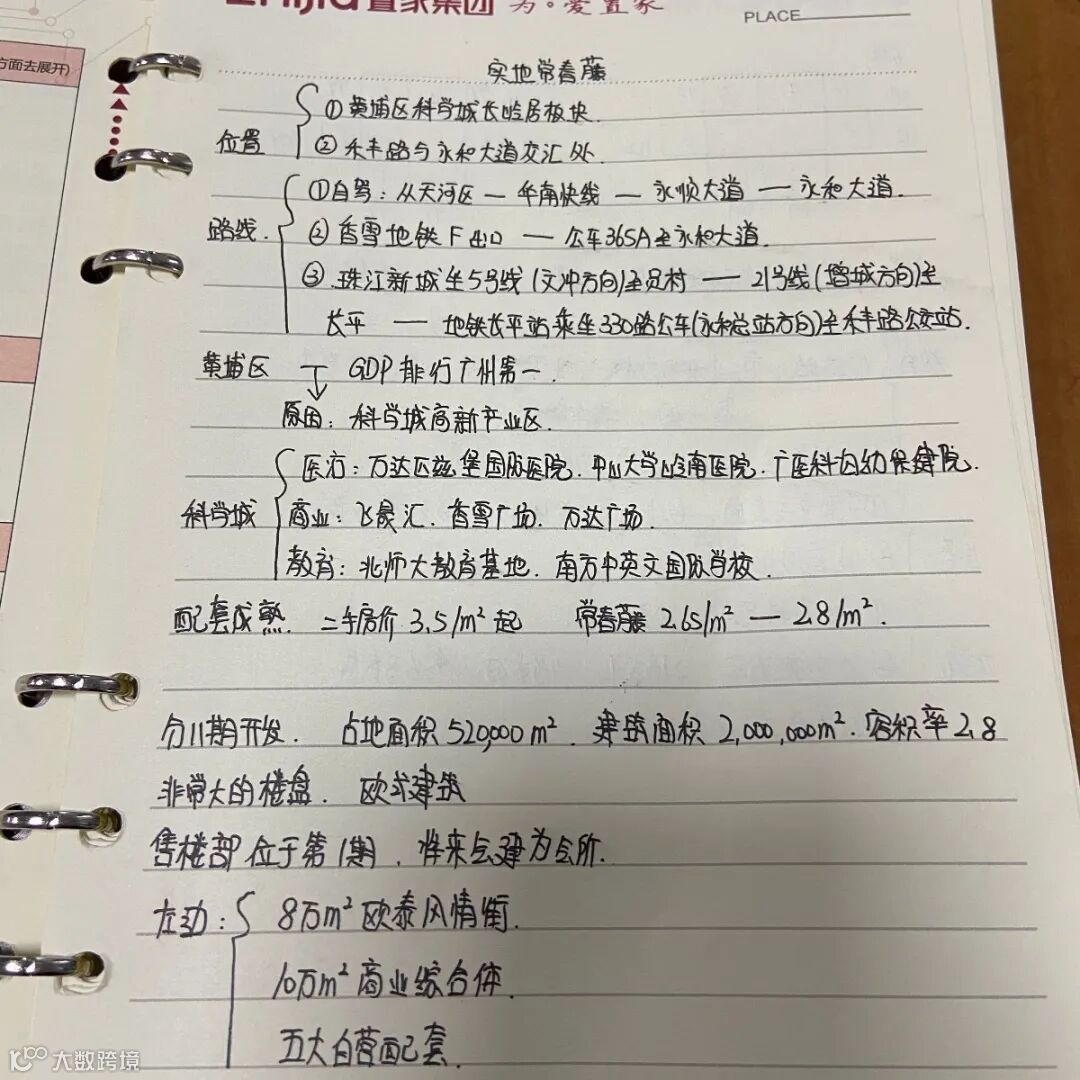 置家集团 为·爱置家
PLACE
方面去展开)
实地常春藤
位置
①黄埔区科学城长岭居板块.
②禾丰路与永和大道交汇处.
路线.
①自驾:从天河区 — 华南快线 — 永顺大道 — 永和大道.
②香雪地铁F出口 — 公车365A至永和大道.
③.珠江新城坐5号线(文冲方向)至员村 — 21号线(增城方向)至
长平 — 地铁长平站乘坐330路公车(永和总站方向)至禾丰路公交站.
黄埔区 → GDP排行广州第一.
原因:科学城高新产业区.
科学城
医疗:万达匹兹堡国际医院.中山大学岭南医院.广医科妇幼保健院.
商业:飞晟汇.香雪广场.万达广场.
教育:北师大教育基地.南方中英文国际学校.
配套成熟.二手房价3.5/m²起 常春藤 2.65/m² — 2.8/m².
分11期开发. 占地面积520,000m². 建筑面积2,000,000m².容积率2.8
非常大的楼盘. 欧式建筑
售楼部位于第1期,将来会建为会所.
左边:
8万m²欧泰风情街.
10万m²商业综合体.
五大自营配套.
大数跨境